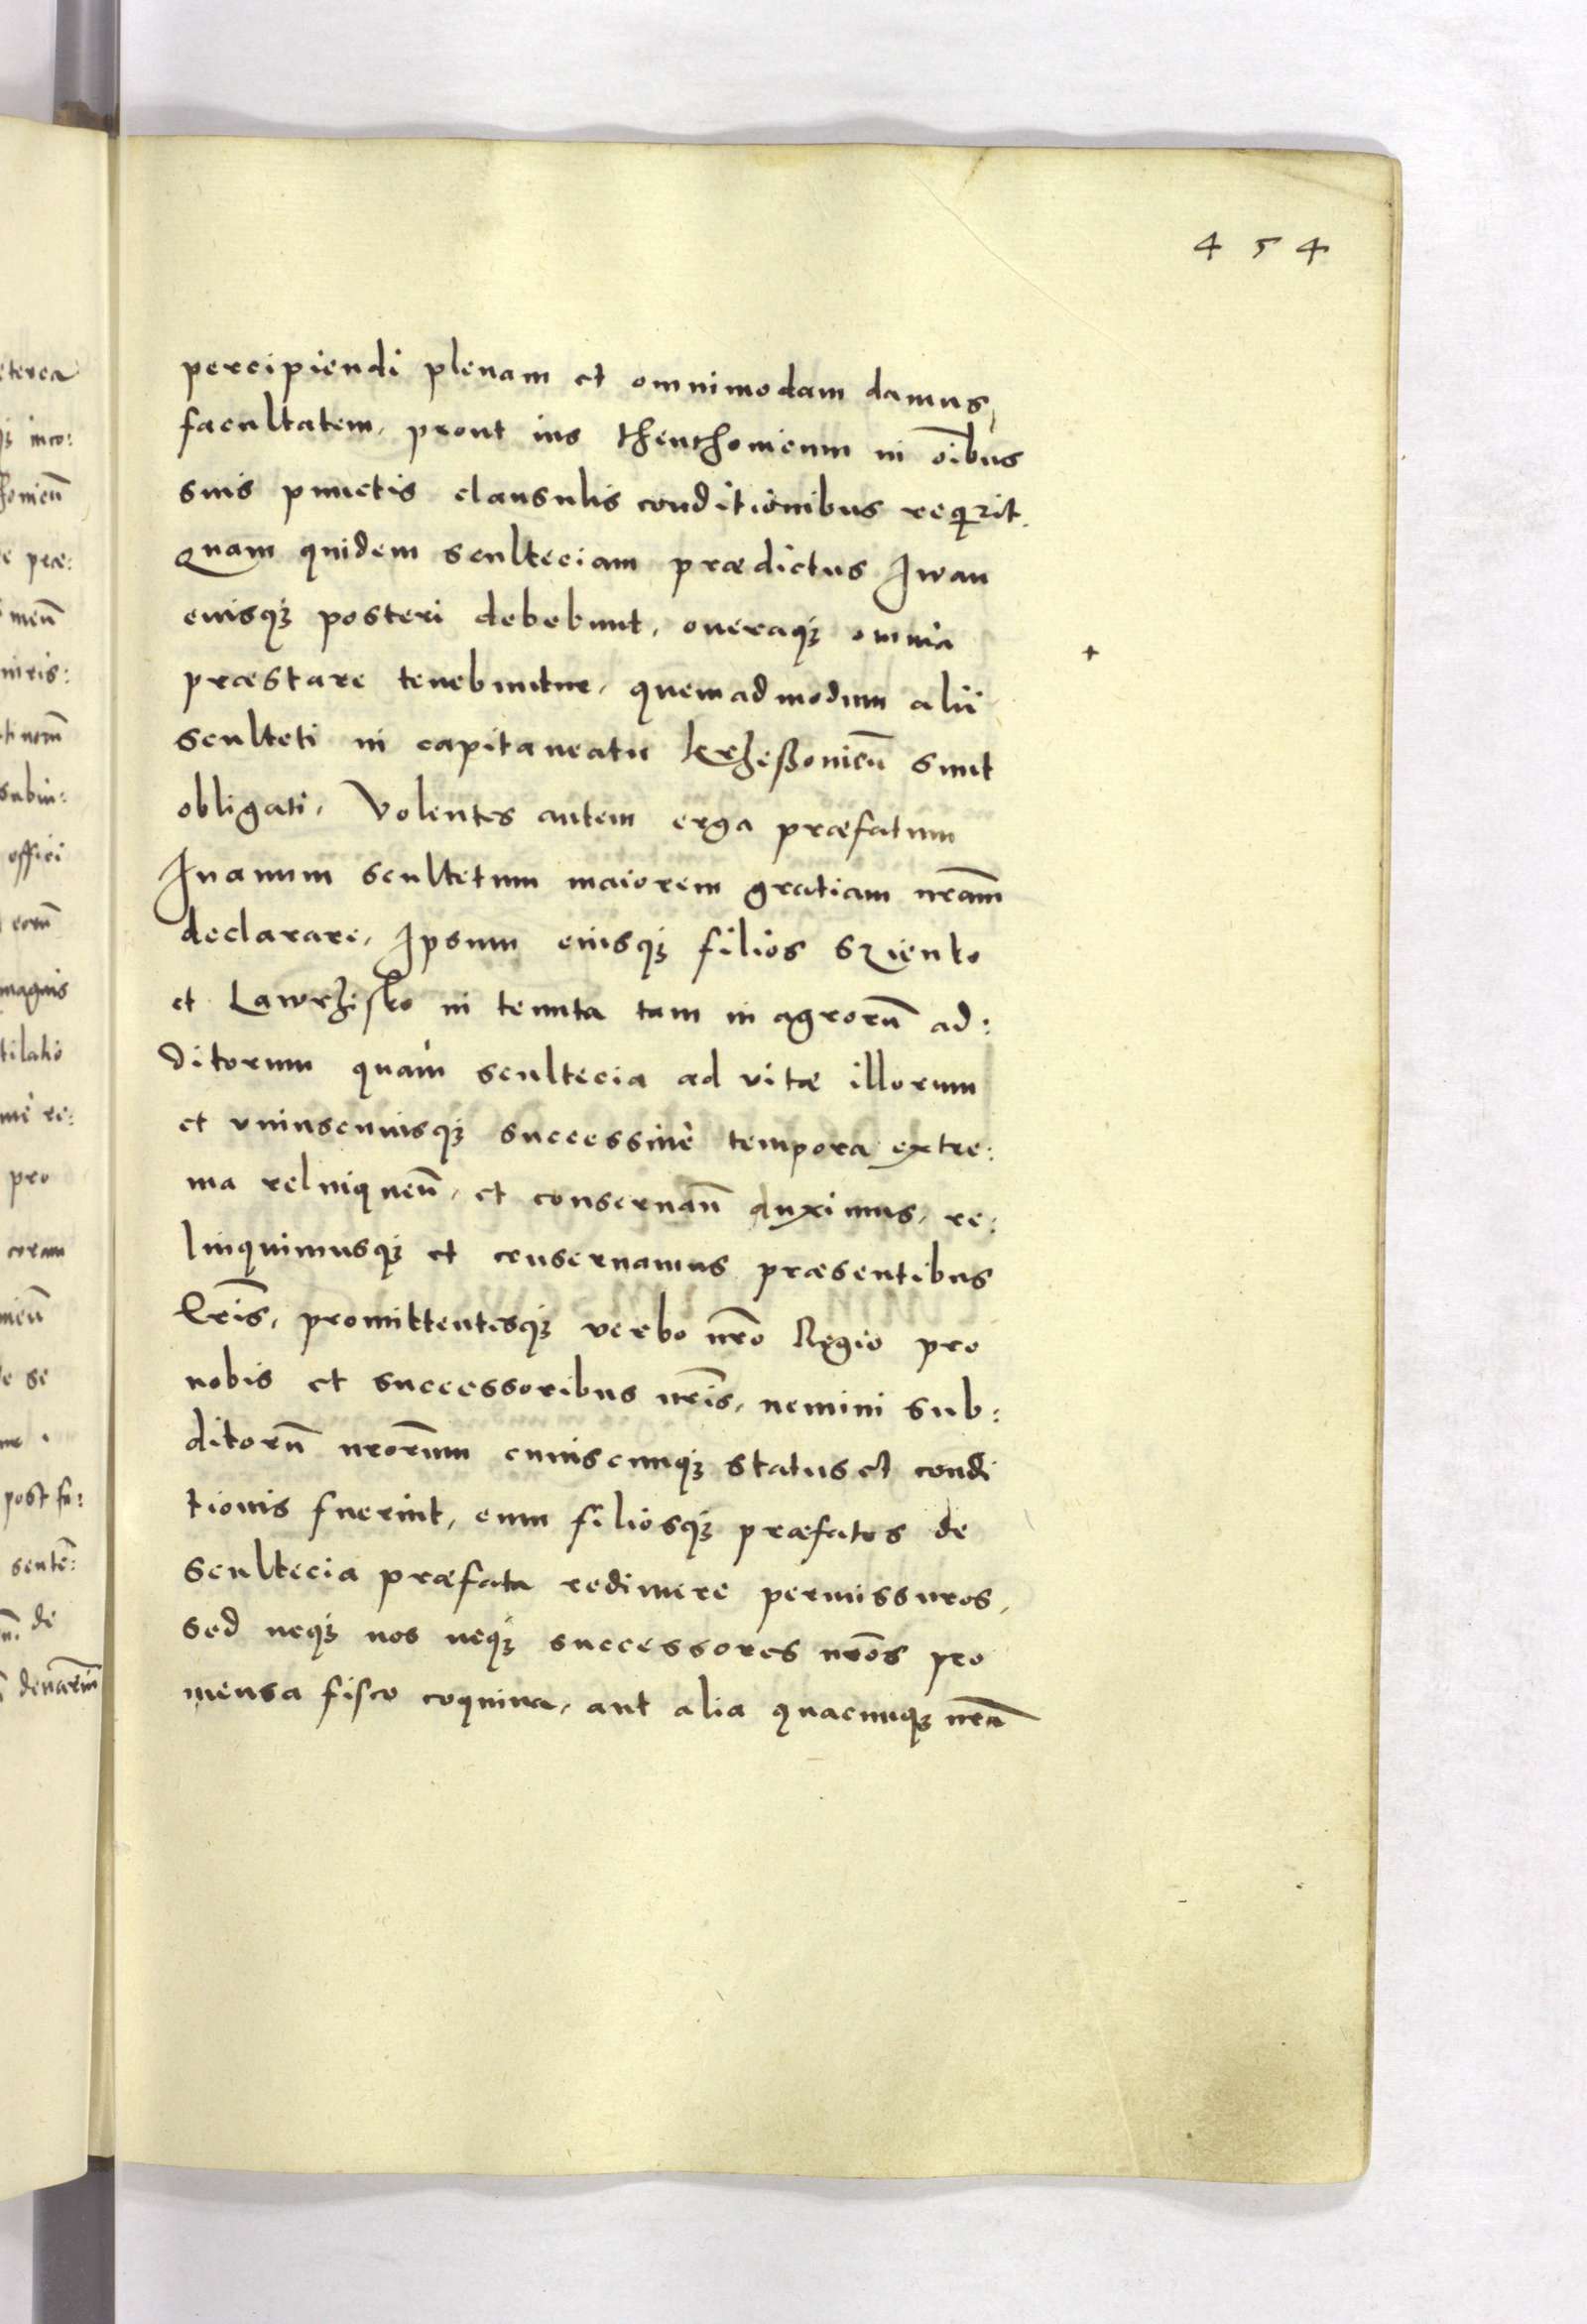 454
percipiendi plenam et omnimodam damus
facultatem, prout ius thenthonicum in oĩbus
suis punctis clausulis conditionibus reqrit.
Quam quidem sculteciam prædictus Iwan
eiusqꝫ posteri debebunt, oneraqꝫ omnia
+
præstare tenebuntur, quemadmodum alii
sculteti in capitaneatu krzeßoviceñ sunt
obligati, Volentes autem erga præfatum
Iuanum scultetum maiorem gratiam nr̃am
declarare, Ipsum eiusqꝫ filios Szienko
et Lawrzisko in tenuta tam in agrorũ ad:
ditorum quàm scultecia ad vitæ illorum
et vniuscuiusqꝫ successiuè tempora extre:
ma relinqueñ, et conseruañ duximus, re:
linquimusqꝫ et conseruamus præsentibus
lr̃is, promittentesqꝫ verbo nr̃o Regio pro
nobis et successoribus nr̃is, nemini sub:
ditorũ nr̃orum cuiuscunqꝫ status et condi
tionis fuerint, eum filiosqꝫ præfatos de
scultecia præfata redimere permissuros,
sed neqꝫ nos neqꝫ successores nr̃os pro
mensa fisco coquina, aut alia quacunqꝫ nr̃a
eterea
qꝫ inco:
honicũ
e præ:
niris:
subin:
offici
eorũ
magnis
tilatio
mè re:
pro
coram
e se
post fa:
senteñ:
de
denariũ